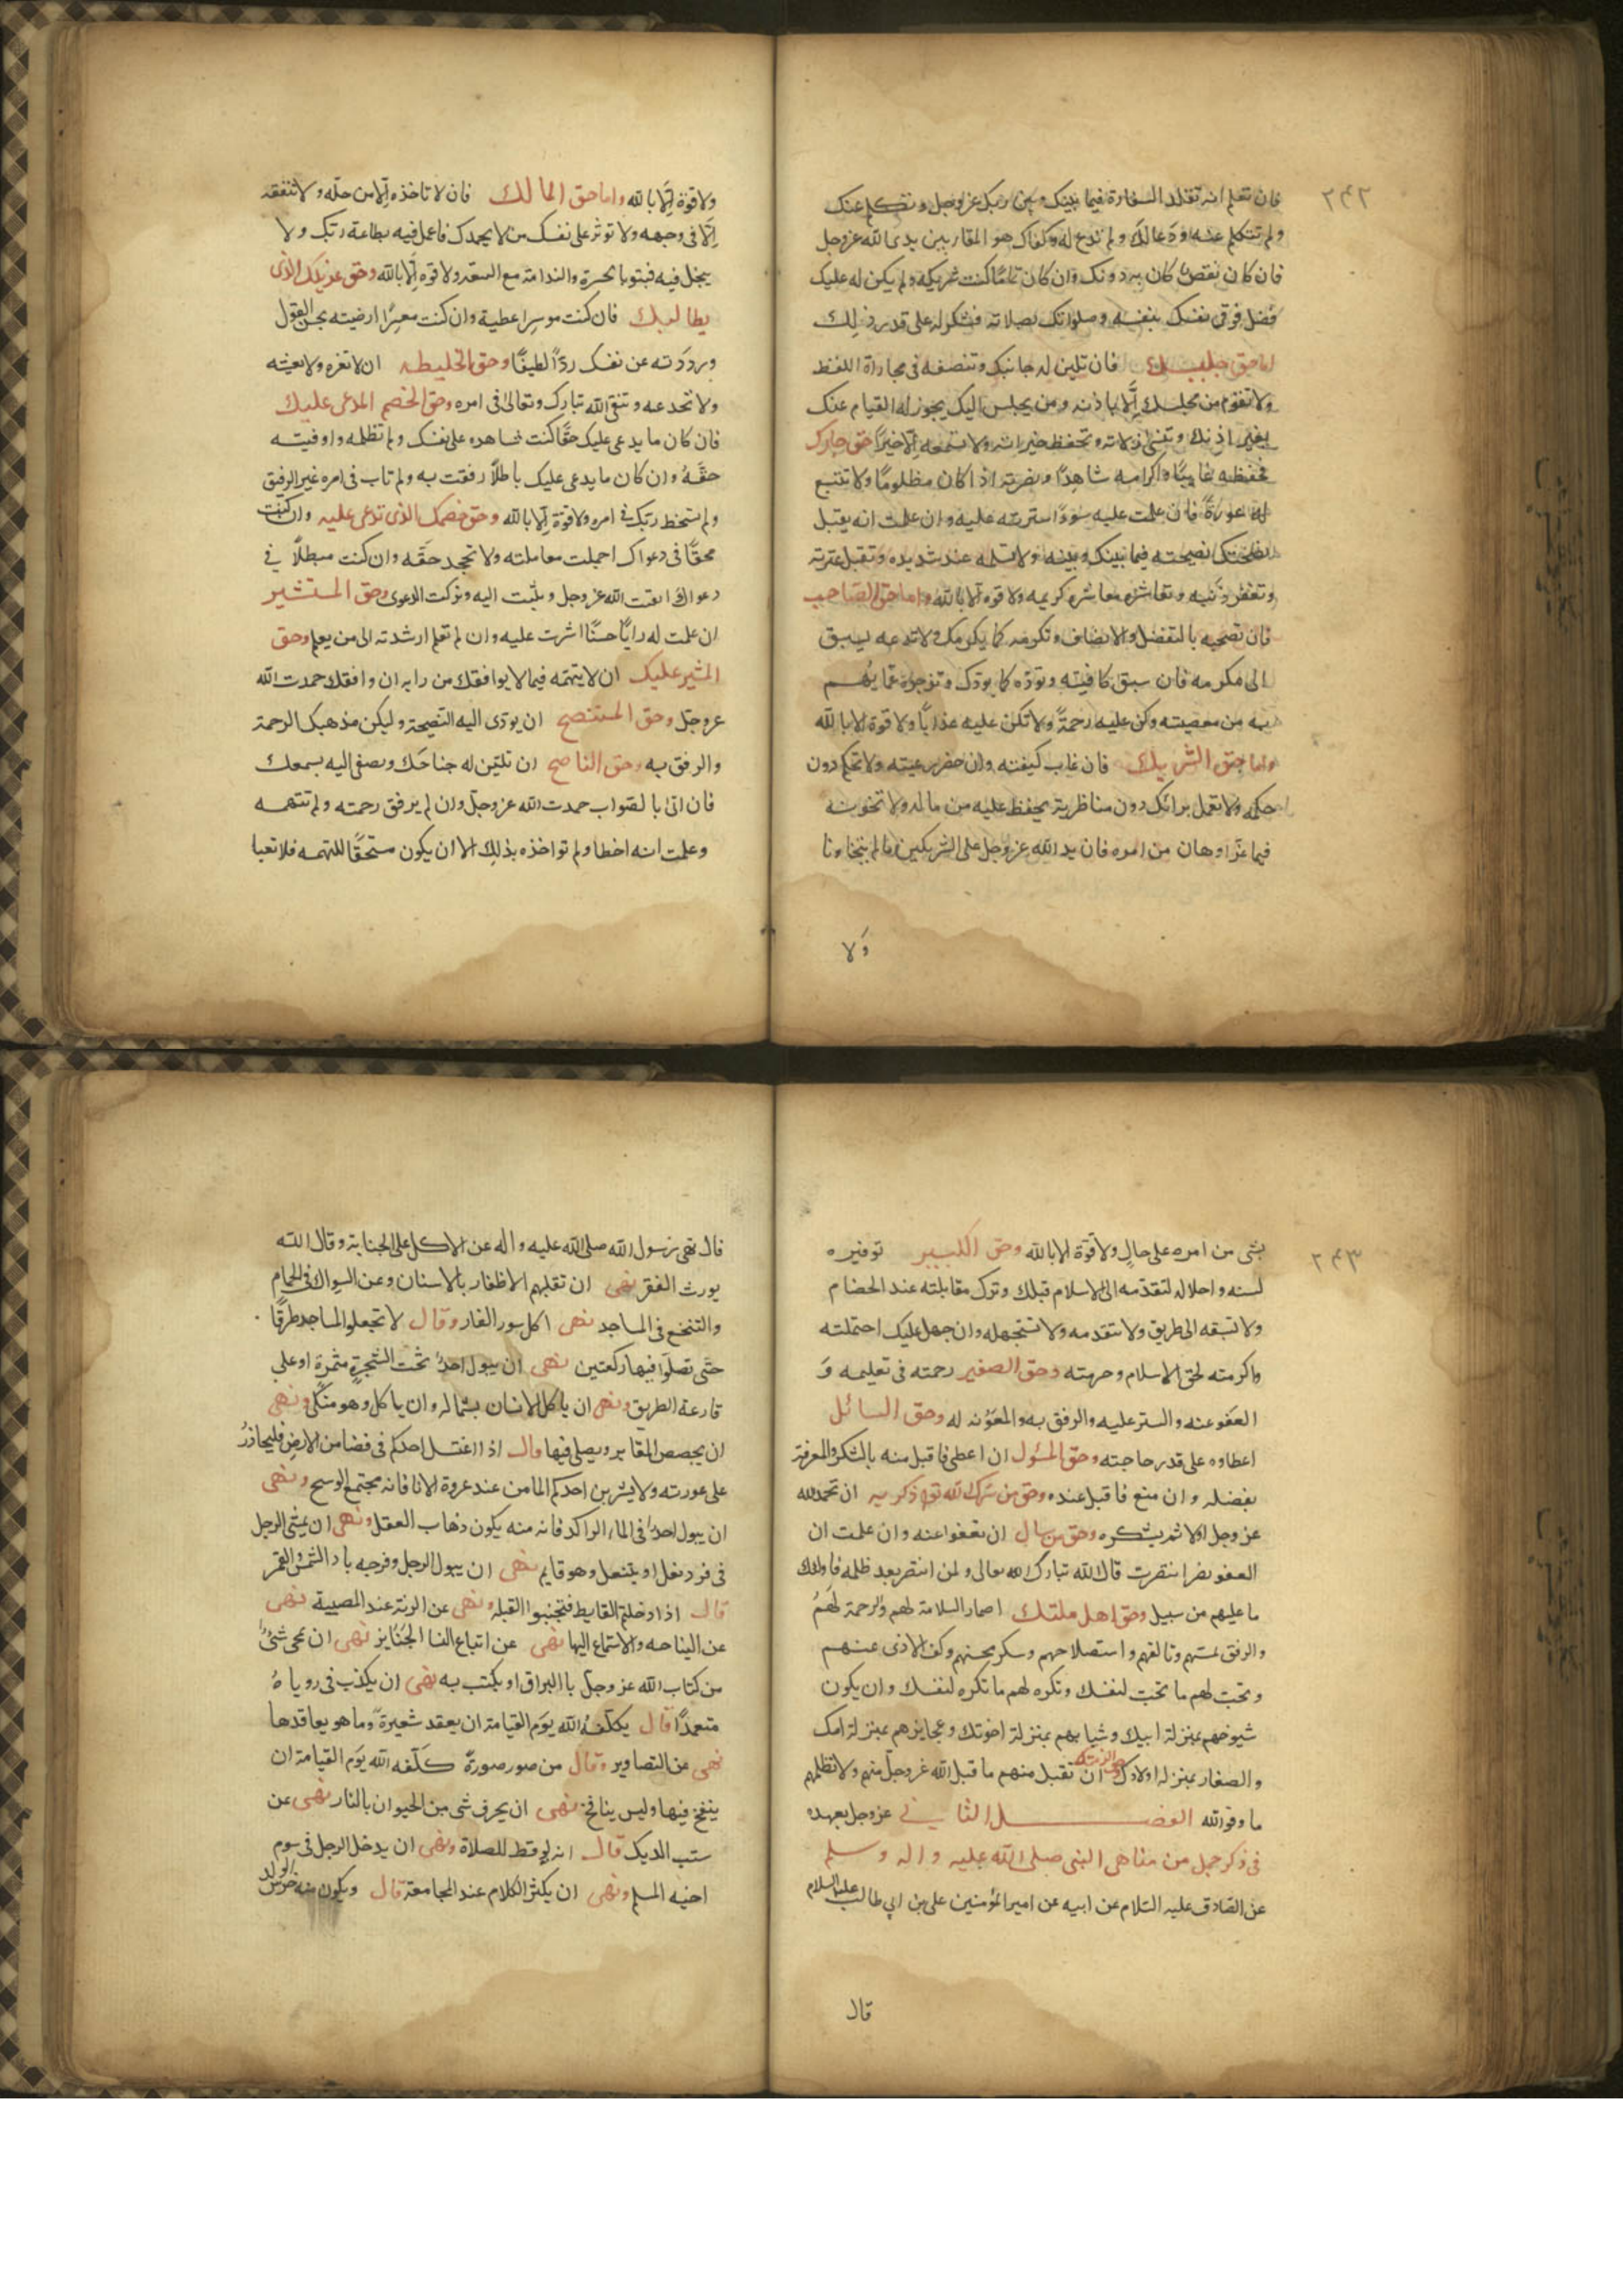 ٢٤٢
فان تعلم انه تقلد السفارة فيما بينك وبين ربك عز وجل وتتكلم عنك
ولم تتكلم عنه ودعا لك ولم تدع له وكفاك هو المقام بين يدى الله عز وجل
فان كان نقص كان به دونك وان كان تماما كنت شريكه ولم يكن له عليك
فضل فوقى نفسك بنفسه وصلواتك بصلاته فتشكر له على قدر ذلك
اما حق جليسك فان تلين له جانبك وتنصفه فى مجاراة اللفظ
ولا تقوم من مجلسك إلّا باذنه ومن يجلس اليك يجوز له القيام عنك
بغير اذنك وتنسى زلاته وتحفظ خيراته ولا تسمعه إلّا خيرًا حق جارك
حفظه غايبًا واكرامه شاهدًا ونصرته اذا كان مظلومًا ولا تتبع
له عورةً فان علمت عليه سوءًا سترته عليه وان علمت انه يقبل
نصيحتك نصيحته فيما بينك وبينه ولا تسلمه عند شديده وتقبل عثرته
وتغفر ذنبه وتعاشره معاشره كريمه ولا قوه الا بالله واما حق الصاحب
فان تصحبه بالتفضل والانصاف وتكرمه كما يكرمك ولا تدعه يسبق
الى مكرمه فان سبق كافيته وتوده كما يودك وتزجره عما يهم
به من معصيته وكن عليه رحمةً ولا تكن عليه عذابًا ولا قوة الا بالله
واما حق الشريك فان غاب كفيته وان حضر رعيته ولا تحكم دون
حكمه ولا تعمل برائك دون مناظرته تحفظ عليه من ماله ولا تخونه
فيما عزّ او هان من امره فان يد الله عز وجل على الشريكين ما لم يتخاونا
وَلا
ولا قوة إلّا بالله واما حق المالك فان لا تاخذه إلّا من حلّه ولا تنفقه
إلّا فى وجهه ولا توثر على نفسك من لا يحمدك فاعمل فيه بطاعة ربّك ولا
يبخل فيه فيتوبا لحسرة والندامة مع السعه ولا قوه إلّا بالله وحق غريمك الذى
يطالبك فان كنت موسرا عطية وان كنت معسرًا ارضيته بحسن القول
ورددته عن نفسك ردًّا لطيفًا وحق الخليطه ان لا تغره ولا تغشه
ولا تخدعه وتتقى الله تبارك وتعالى فى امره وحق الخصم المدعى عليك
فان كان ما يدعى عليك حقًا كنت شاهده على نفسك ولم تظلمه واوفيته
حقّهُ وان كان ما يدعى عليك باطلًا رفقت به ولم تاب فى امره غير الرفق
ولم تسخط ربك فى امره ولا قوة إلّا بالله وحق خصمك الذى تدعى عليه وان كنت
محقًا فى دعواك اجملت معاملته ولا تجحد حقّه وان كنت مبطلًا فى
دعواك اتقيت الله عز وجل وتبت اليه وتركت الدعوى وحق المستشير
ان علمت له رايًا حسنًا اشرت عليه وان لم تعلم ارشدته الى من يعلم وحق
المشير عليك ان لا يتهمه فيما لا يوافقك من رايه ان وافقك حمدت الله
عز وجل وحق المستنصح ان يودى اليه النصيحة وليكن مذهبك الرحمة
والرفق به وحق الناصح ان تلين له جناحك وتصغى اليه بسمعك
فان اتى بالصواب حمدت الله عز وجل وان لم يرفق رحمته ولم تتهمه
وعلمت انه اخطا ولم تواخذه بذلك الا ان يكون مستحقًا للتهمه فلا تعبا
٢٤٣
بشى من امره على حالٍ ولا قوّة الا بالله وحق الكبير توقيره
لسنه واجلاله لتقدمه الى الاسلام قبلك وترك مقابلته عند الخصام
ولا تسبقه الى طريق ولا تتقدمه ولا تستجهله وان جهل عليك احتملته
واكرمته لحق الاسلام وحرمته وحق الصغير رحمته فى تعليمه وَ
العفو عنه والستر عليه والرفق به والمعونه له وحق السائل
اعطاوه على قدر حاجته وحق المسئول ان اعطى فاقبل منه بالشكر والمعرفة
بفضله وان منع فاقبل عنده وحق من سرك لله تعالى ذكره ان تحمد الله
عز وجل اولا ثم يشكره وحق من سال ان تعفوا عنه وان علمت ان
العفو يضر انتصرت قال الله تبارك الله تعالى ولمن انتصر بعد ظلمه فاولئك
ما عليهم من سبيل وحق اهل ملتك اضمار السلامة لهم والرحمة لهمُ
والرفق بمسيهم وتالفهم واستصلاحهم وشكر محسنهم وكف الاذى عنهم
وتحبّ لهم ما تحبّ لنفسك وتكره لهم ما تكره لنفسك وان يكون
شيوخهم بمنزلة ابيك وشبابهم بمنزلة اخوتك وعجايزهم بمنزلة امك
والصغار بمنزله اولادك وحق الذمة ان تقبل منهم ما قبل الله عز وجل منهم ولا تظلمهم
ما وفو الله الفصل الثانى عز وجل بعهده
فى ذكر جمل من مناهى النبى صلى الله عليه واله وسلم
عن الصادق عليه السلام عن ابيه عن امير المؤمنين على بن ابى طالب عليه السلام
قال
قال نهى رسول الله صلى الله عليه واله عن الاكل على الجنابة وقال انه
يورث الفقر نهى ان تقليم الاظفار بالاسنان وعن السواك فى الحمام
والتنخع فى المساجد نهى اكل سور الفار وقال لا تجعلوا المساجد طرقًا
حتّى تصلّوا فيها ركعتين نهى ان يبول احدٌ تحت الشجرةٍ مثمرةٍ او على
قارعة الطريق ونهى ان ياكل الانسان بشماله وان ياكل وهو متكى ونهى
ان يجصص المقابر ويصلى فيها وقال اذا اغتسل احدكم فى فضا من الارض فليحاذرُ
على عورته ولا يشربن احدكم الما من عند عروة الانا فانه مجتمع الوسخ ونهى
ان يبول احدٌ فى الماء الراكد فانه منه يكون ذهاب العقل ونهى ان يمشى الرجل
فى فرد نعل او يتنعل وهو قايم نهى ان يبول الرجل وفرجه باد الشمس والقمر
قال اذا دخلتم الغايط فتجنبوا القبله ونهى عن الرنة عند المصيبة نهى
عن النياحه والاستماع اليها نهى عن اتباع النسا الجنايز نهى ان يمحى شئٌ
من كتاب الله عز وجل باالبزاق او يكتب به نهى ان يكذب فى روياهُ
متعمدًا قال يكلّفهُ الله يوم القيامة ان يعقد شعيرة وما هو بعاقدها
نهى من التصاوير وقال من صور صورةً كلّفه الله يوم القيامة ان
ينفخ فيها وليس ينافخ نهى ان يحرق شى من الحيوان بالنار نهى عن
ستب الديك قال انه يوقظ للصلاة ونهى ان يدخل الرجل فى سوم
اخيه المسلم ونهى ان يكثر الكلام عند المجامعة قال ويكون منه خرس الولد